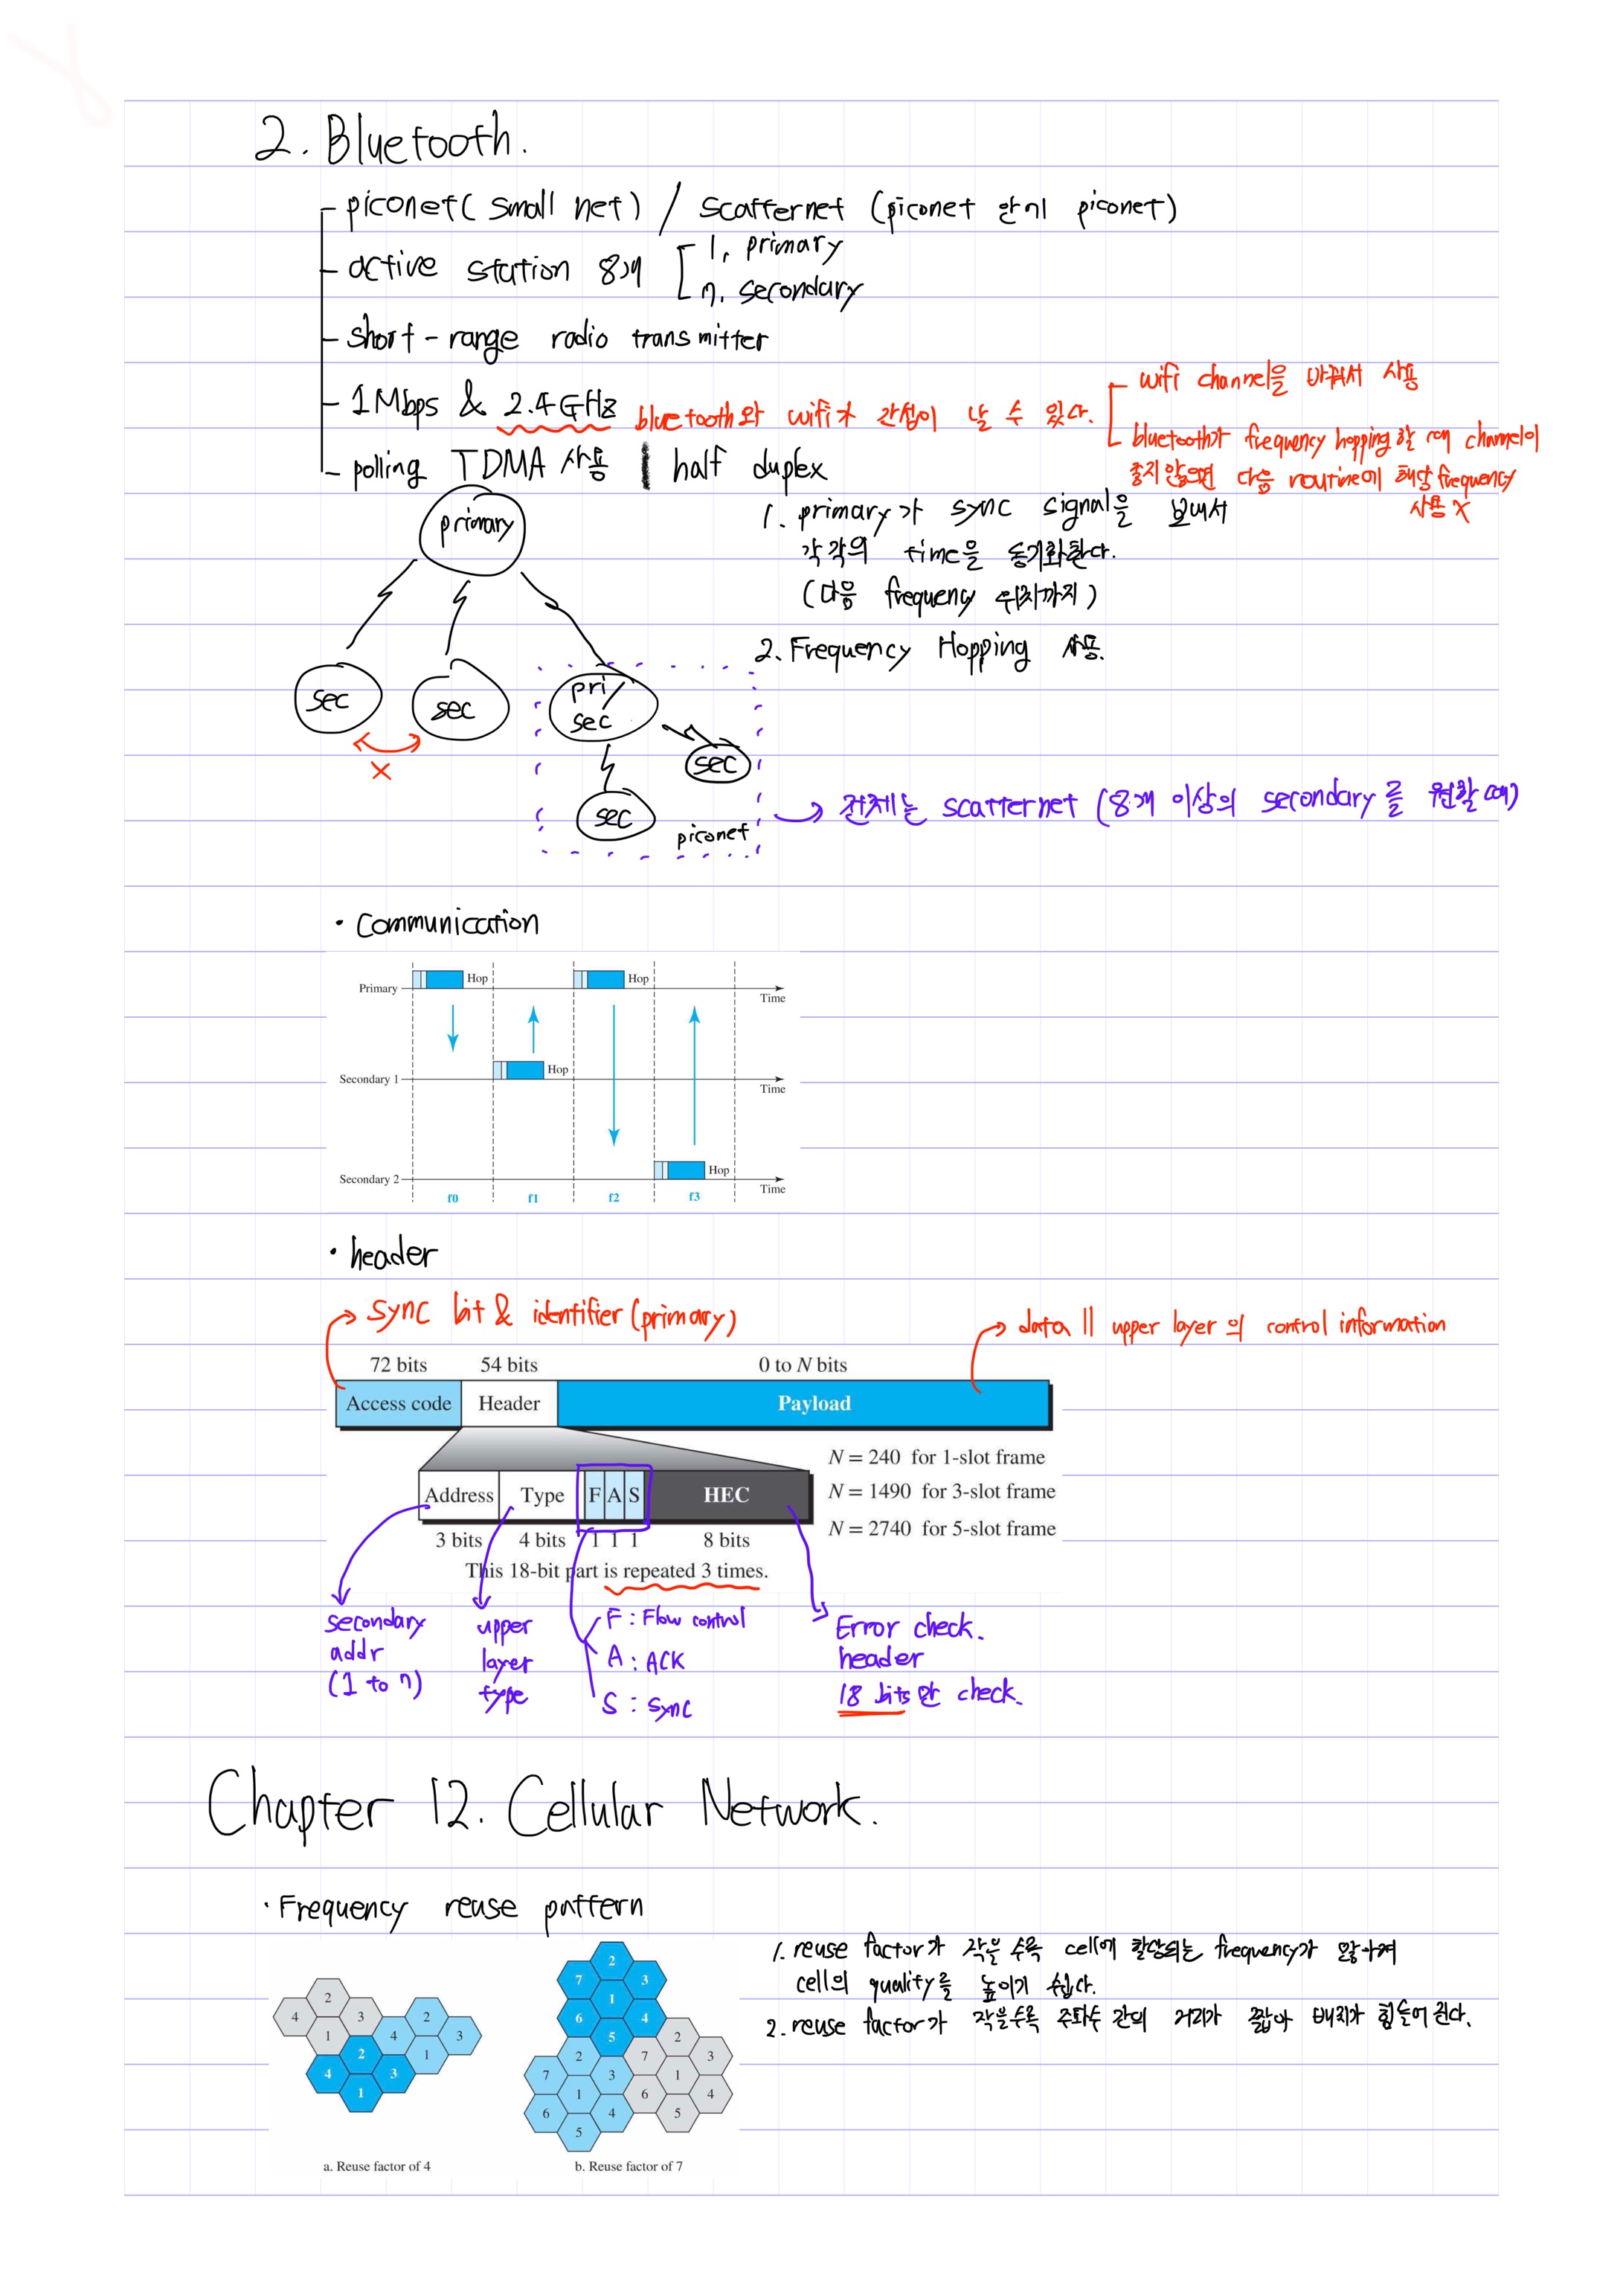 2. Bluetooth.
- piconet( small net ) / scatternet (piconet 안에 piconet)
- active station 8개
1, primary
7, secondary
- short-range radio transmitter
- 1Mbps & 2.4GHz
bluetooth와 wifi가 간섭이 날 수 있다.
wifi channel을 바꿔서 사용
bluetooth가 frequency hopping 할 때 channel이
좋지 않으면 다음 routine에 해당 frequency
사용 X
- polling TDMA 사용 | half duplex
primary
sec
sec
pri/
sec
sec
sec
piconet
X
1. primary가 sync signal을 보내서
각각의 time을 동기화한다.
(다음 frequency 위치까지)
2. Frequency Hopping 사용.
전체는 scatternet (8개 이상의 secondary를 원할 때)
· Communication
Primary
Hop
Hop
Time
Secondary 1
Hop
Time
Secondary 2
Hop
Time
f0 f1 f2 f3
· header
sync bit & identifier (primary)
data || upper layer의 control information
72 bits 54 bits 0 to N bits
Access code Header Payload
N = 240 for 1-slot frame
N = 1490 for 3-slot frame
N = 2740 for 5-slot frame
Address Type F A S HEC
3 bits 4 bits 1 1 1 8 bits
This 18-bit part is repeated 3 times.
secondary
addr
(1 to 7)
upper
layer
type
F : Flow control
A : ACK
S : sync
Error check.
header
18 bits만 check.
Chapter 12. Cellular Network.
· Frequency reuse pattern
2
4 3
1
2
4 3
1
2
4 3
1
a. Reuse factor of 4
2
7 3
1
6 4
5
2
7 3
1
6 4
5
2
7 3
1
6 4
5
b. Reuse factor of 7
1. reuse factor가 작을 수록 cell에 할당되는 frequency가 많아져
cell의 quality를 높이기 쉽다.
2. reuse factor가 작을수록 주파수 간의 거리가 짧아 배치가 힘들어 진다.